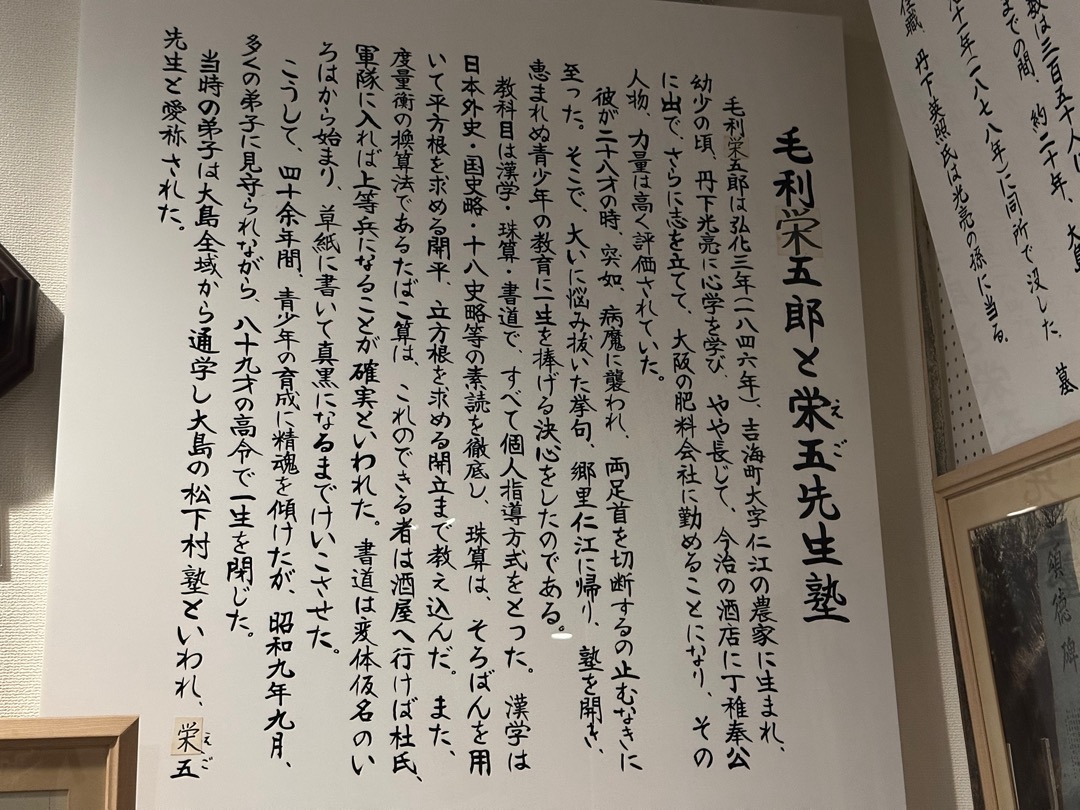 毛利栄五郎と栄五先生塾
えご
毛利栄五郎は弘化三年(一八四六年)、吉海町大字仁江の農家に生まれ、
幼少の頃、丹下光亮に心学を学び、やや長じて、今治の酒店に丁稚奉公
に出で、さらに志を立てて、大阪の肥料会社に勤めることになり、その
人物、力量は高く評価されていた。
彼が二十八才の時、突如、病魔に襲われ、両足首を切断するの止むなきに
至った。そこで、大いに悩み抜いた挙句、郷里仁江に帰り、塾を開き、
恵まれぬ青少年の教育に一生を捧げる決心をしたのである。
教科目は漢学・珠算・書道で、すべて個人指導方式をとった。漢学は
日本外史・国史略・十八史略等の素読を徹底し、珠算は、そろばんを用
いて平方根を求める開平、立方根を求める開立まで教え込んだ。また、
度量衡の換算法であるたばこ算は、これのできる者は酒屋へ行けば杜氏、
軍隊に入れば上等兵になることが確実といわれた。書道は変体仮名のい
ろはから始まり、草紙に書いて真黒になるまでけいこさせた。
こうして、四十余年間、青少年の育成に精魂を傾けたが、昭和九年九月、
多くの弟子に見守られながら、八十九才の高令で一生を閉じた。
当時の弟子は大島全域から通学し大島の松下村塾といわれ、栄五
えご
先生と愛称された。
数は三百五十人に
までの間、約二十年、大島
十一年(一八七八年)に同所で没した。墓
住職、丹下英照氏は光亮の孫に当る。
頌徳碑